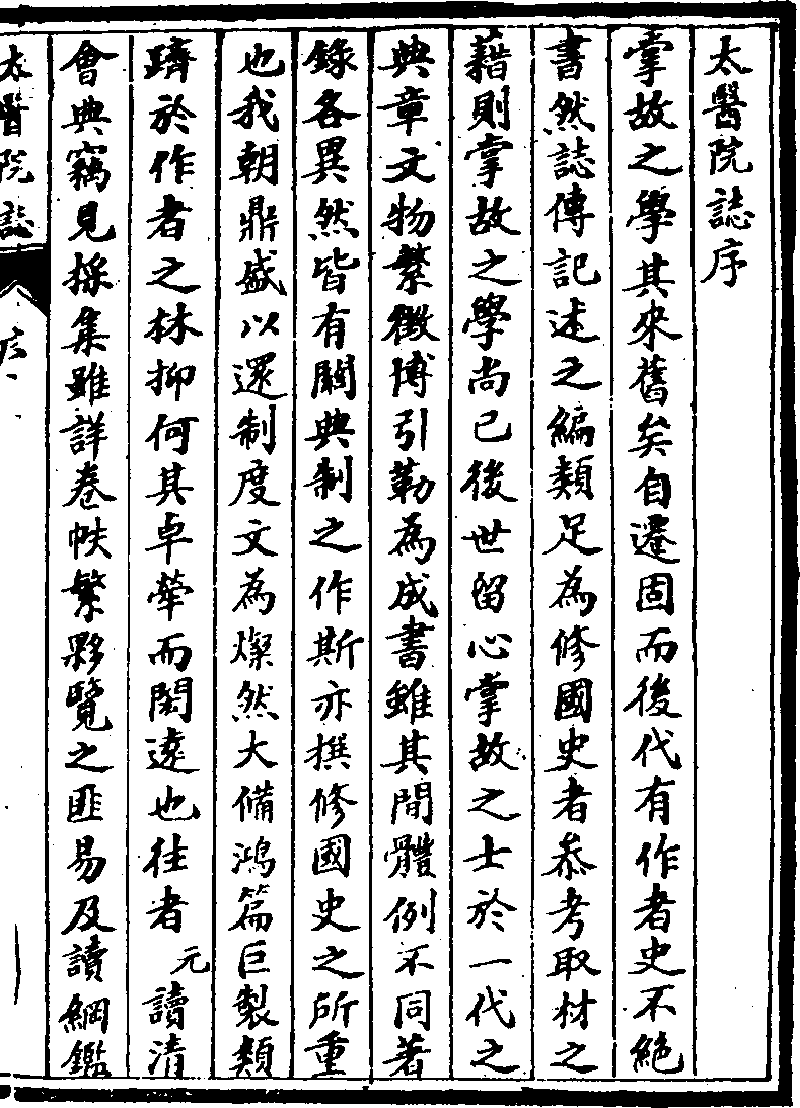 太醫院誌序
掌故之學其來舊矣自遷固而後代有作者史不絕
書然誌傳記述之編類足為修國史者叅考取材之
藉則掌故之學尚已後世留心掌故之士於一代之
典章文物繁徵博引勒為成書雖其間體例不同著
錄各異然皆有關典制之作斯亦撰修國史之所重
也我朝鼎盛以還制度文為燦然大備鴻篇巨製類
躋於作者之林抑何其卓犖而閎遠也往者元讀清
會典竊見採集雖詳卷帙繁夥覽之匪易及讀綱鑑
太醫院誌
序